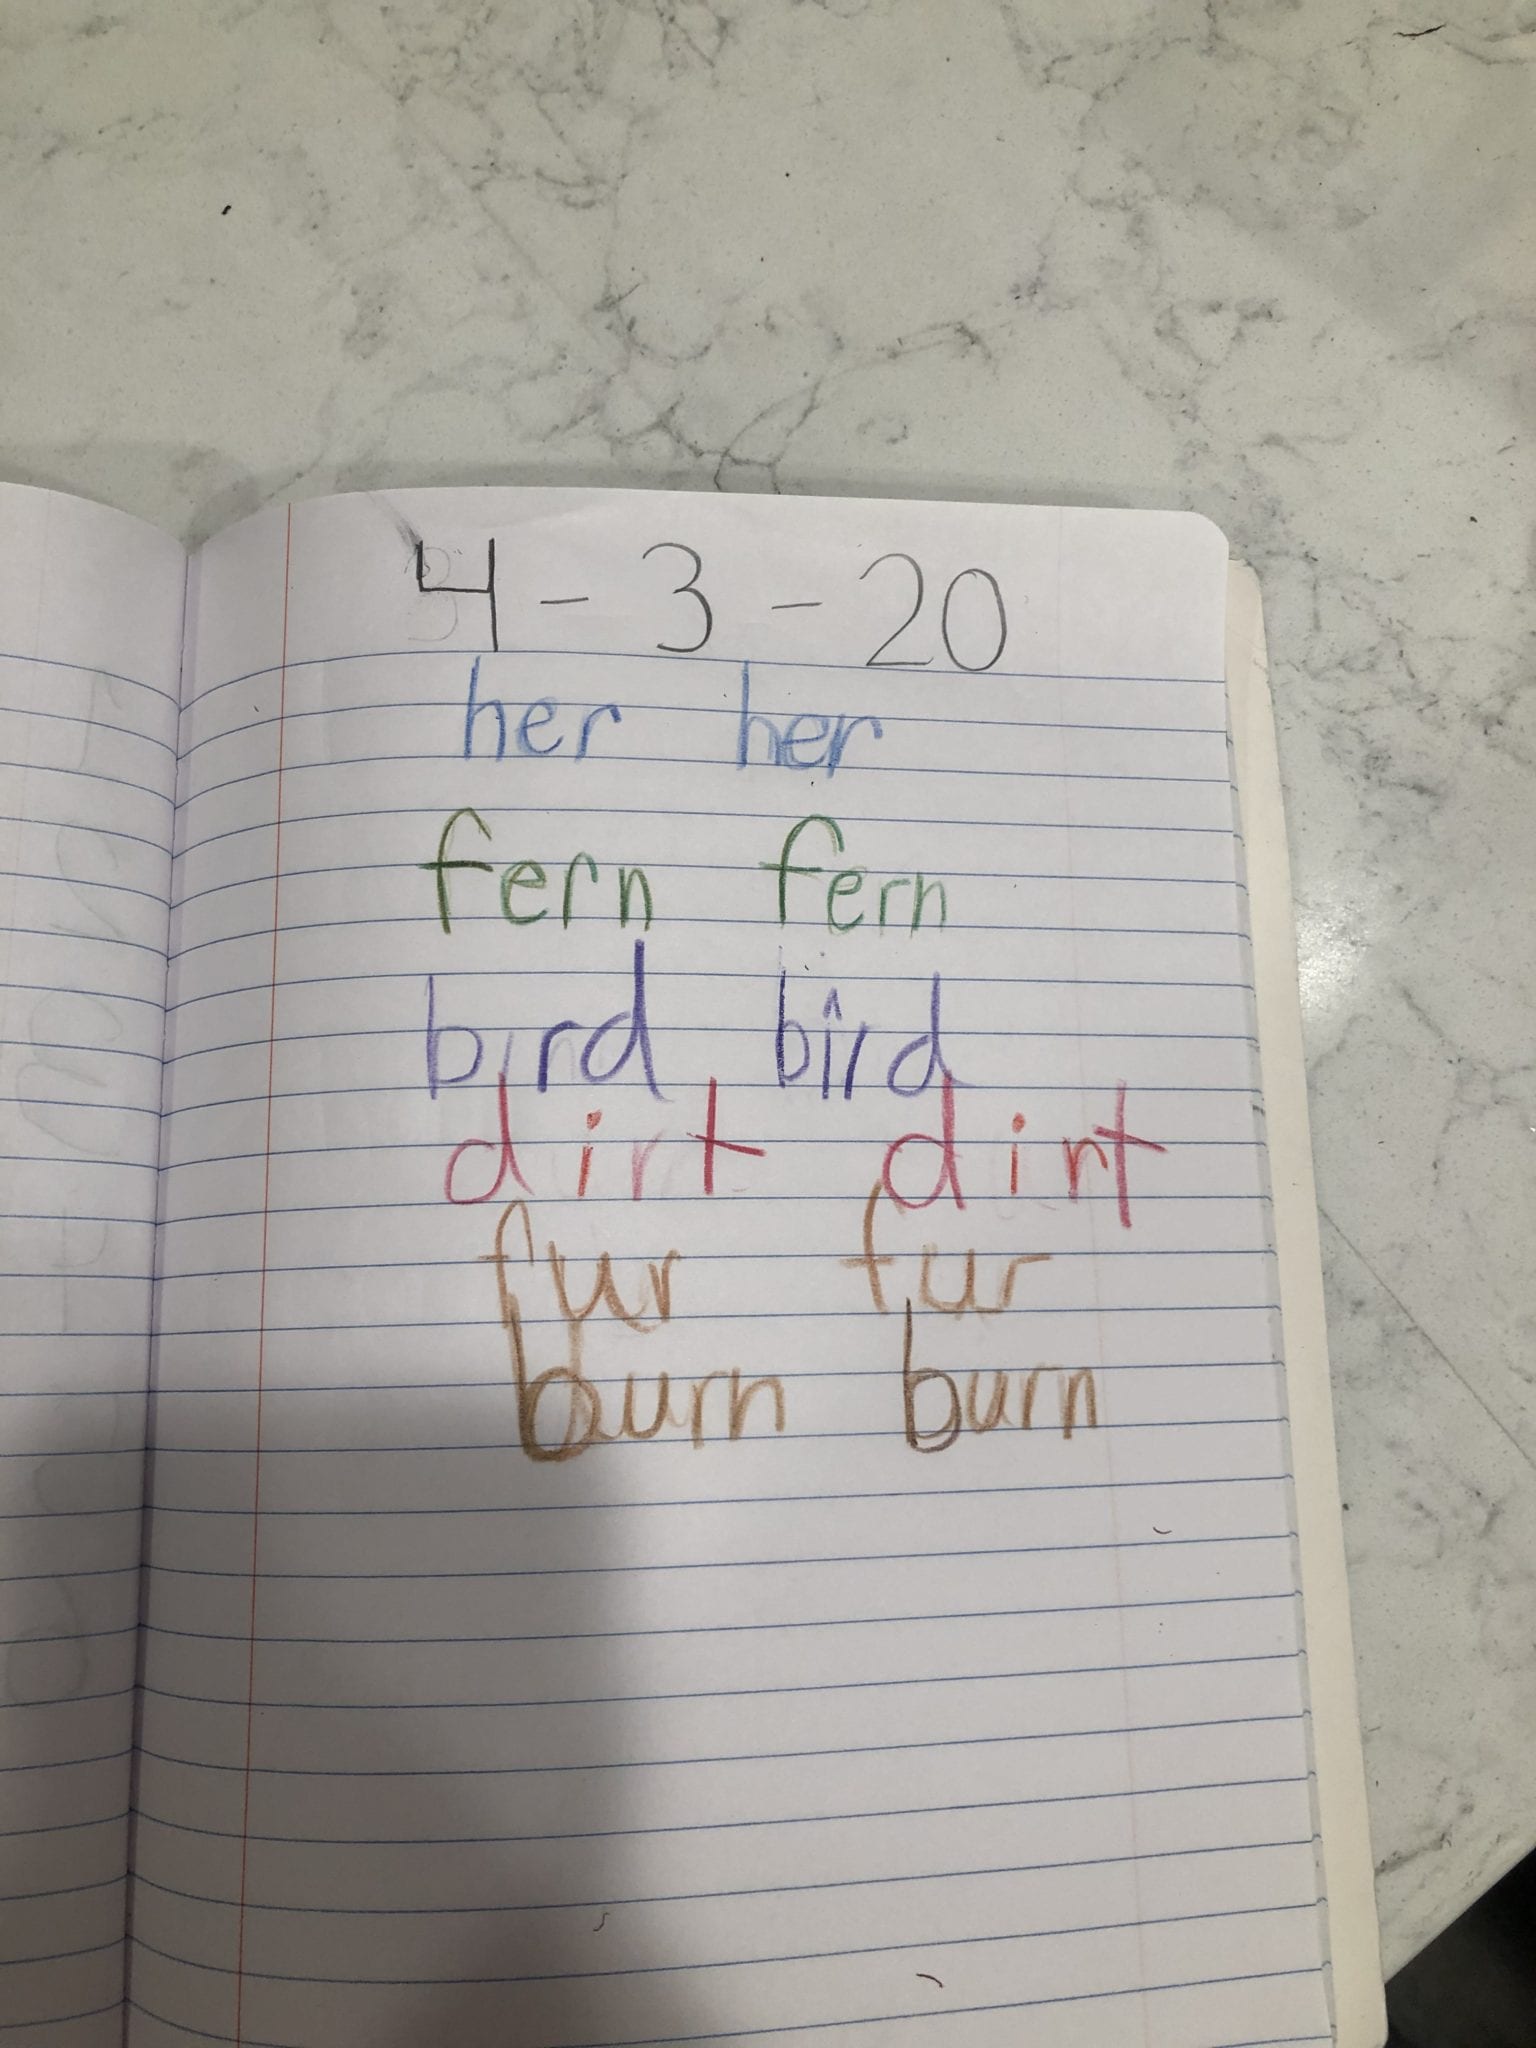 4-3-20
her her
fern fern
bird bird
dirt dirt
fur fur
burn burn